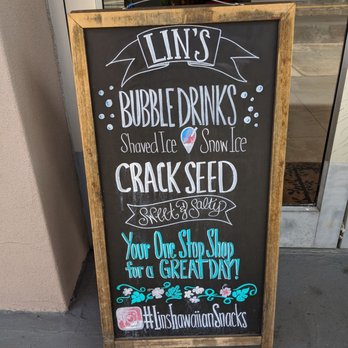 LIN'S
BUBBLE DRINKS
Shaved Ice Snow Ice
CRACK SEED
Sweet & Salty
Your One Stop Shop
for a GREAT DAY!
#LinsHawaiianSnacks